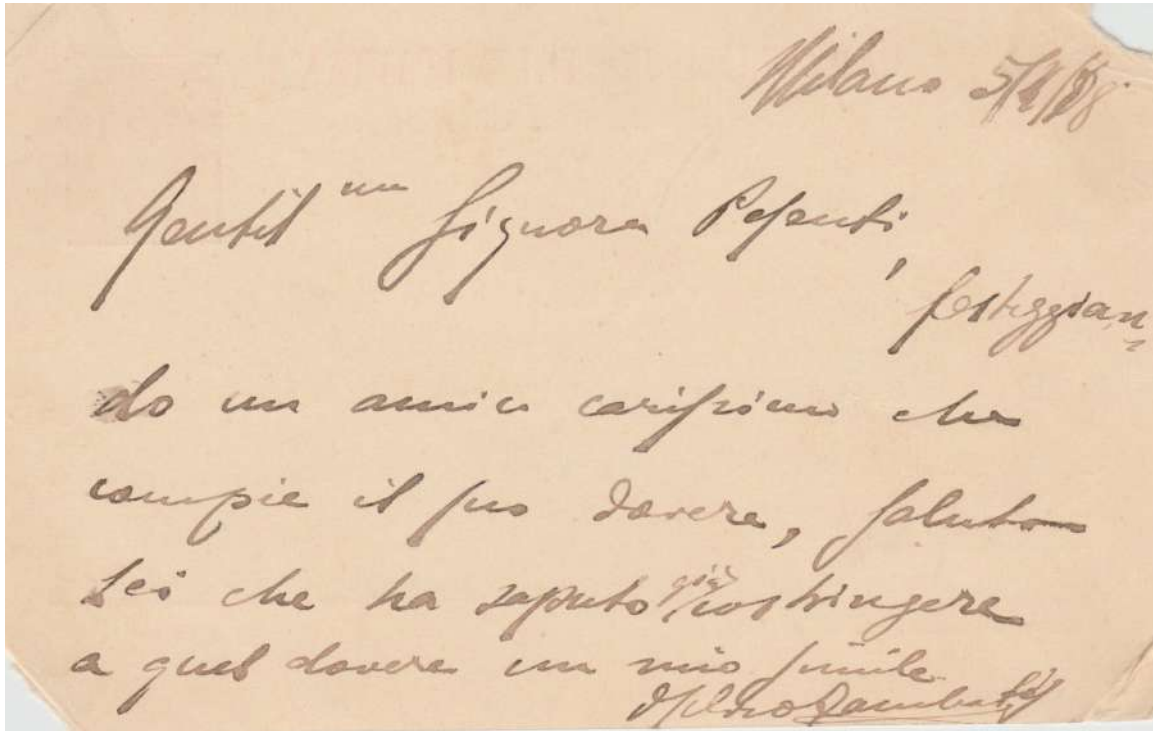 Milano
Gentil ma Signora Pesenti,
festeggian=
do un amico carissimo che
compie il suo dovere, saluto
Lei che ha saputo già costringere
a quel dovere un mio simile